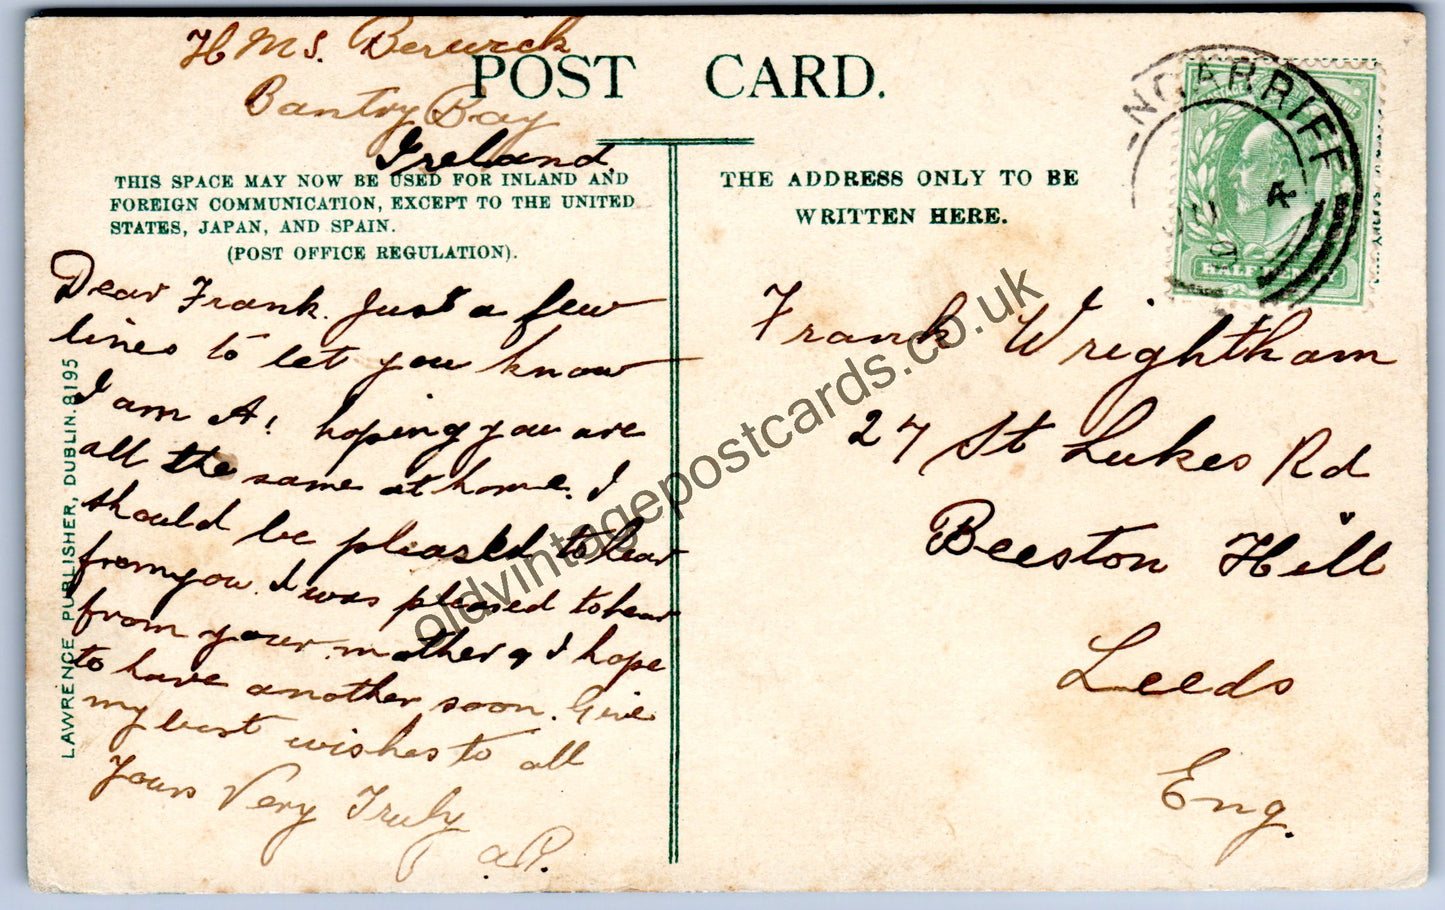 H M S. Berwick
Bantry Bay
Ireland.
POST CARD.
THIS SPACE MAY NOW BE USED FOR INLAND AND
FOREIGN COMMUNICATION, EXCEPT TO THE UNITED
STATES, JAPAN, AND SPAIN.
(POST OFFICE REGULATION).
Dear Frank. Just a few
lines to let you know
I am A1 hoping you are
all the same at home. I
should be pleased to hear
from you. I was pleased to hear
from your mother & I hope
to have another soon. Give
my best wishes to all
Yours Very Truly
a.P.
LAWRENCE PUBLISHER, DUBLIN. 8195
THE ADDRESS ONLY TO BE
WRITTEN HERE.
Frank Wrightham
27 St Lukes Rd
Beeston Hill
Leeds
Eng.
NGARRIFF
POSTAGE
HALFPENNY
oldvintagepostcards.co.uk